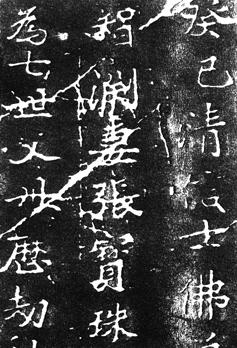 癸巳清信士佛
智淵妻張寶珠
為七世父母歷劫